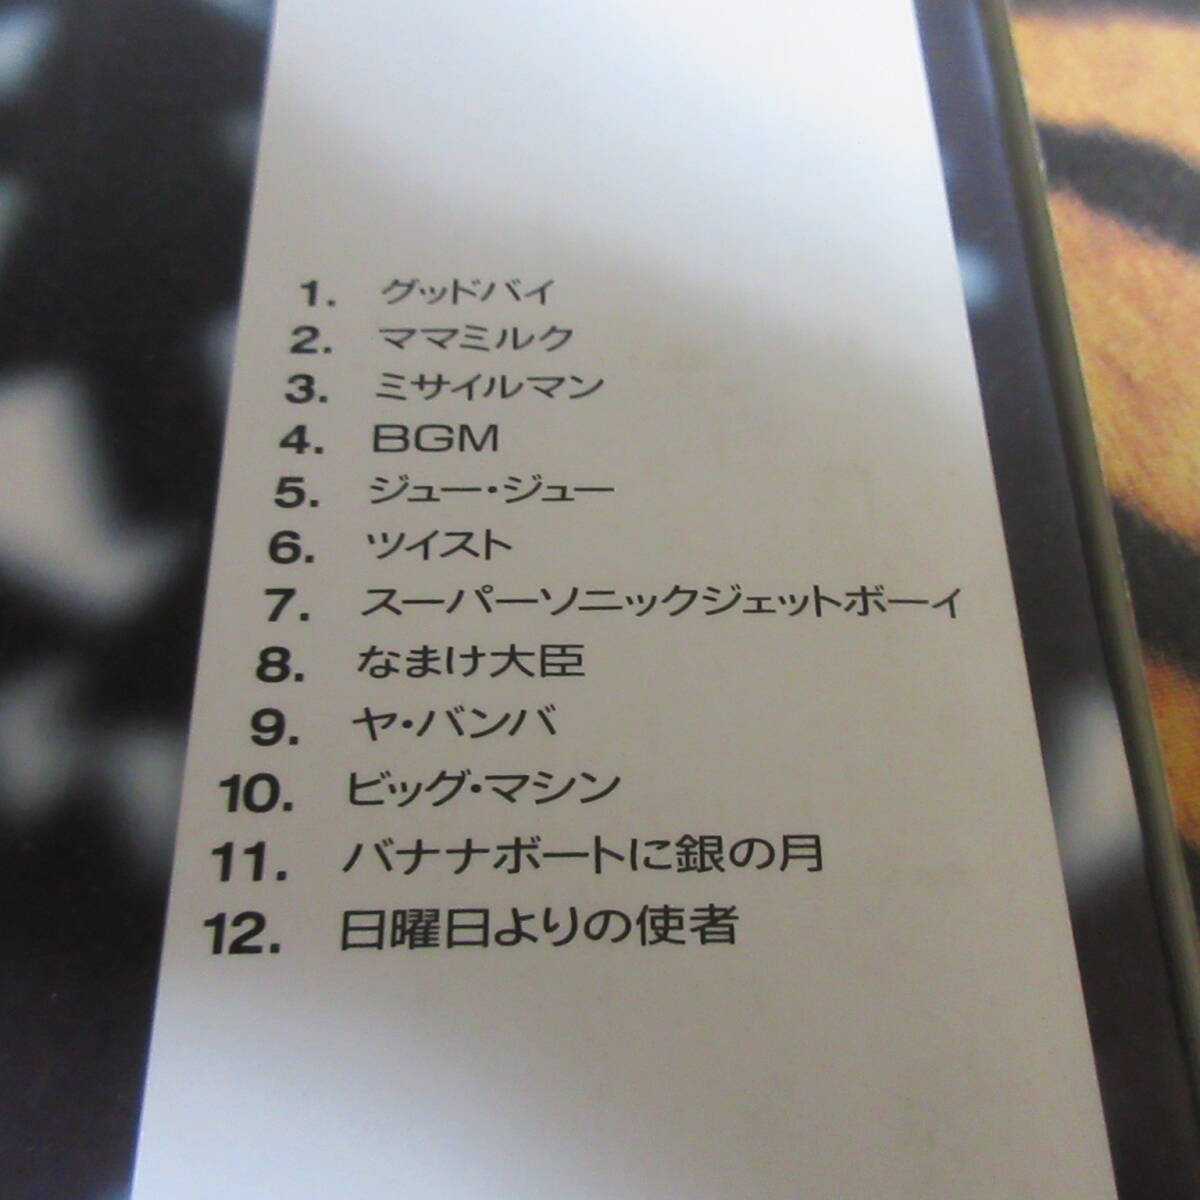 1. グッドバイ
2. ママミルク
3. ミサイルマン
4. BGM
5. ジュー・ジュー
6. ツイスト
7. スーパーソニックジェットボーイ
8. なまけ大臣
9. ヤ・バンバ
10. ビッグ・マシン
11. バナナボートに銀の月
12. 日曜日よりの使者